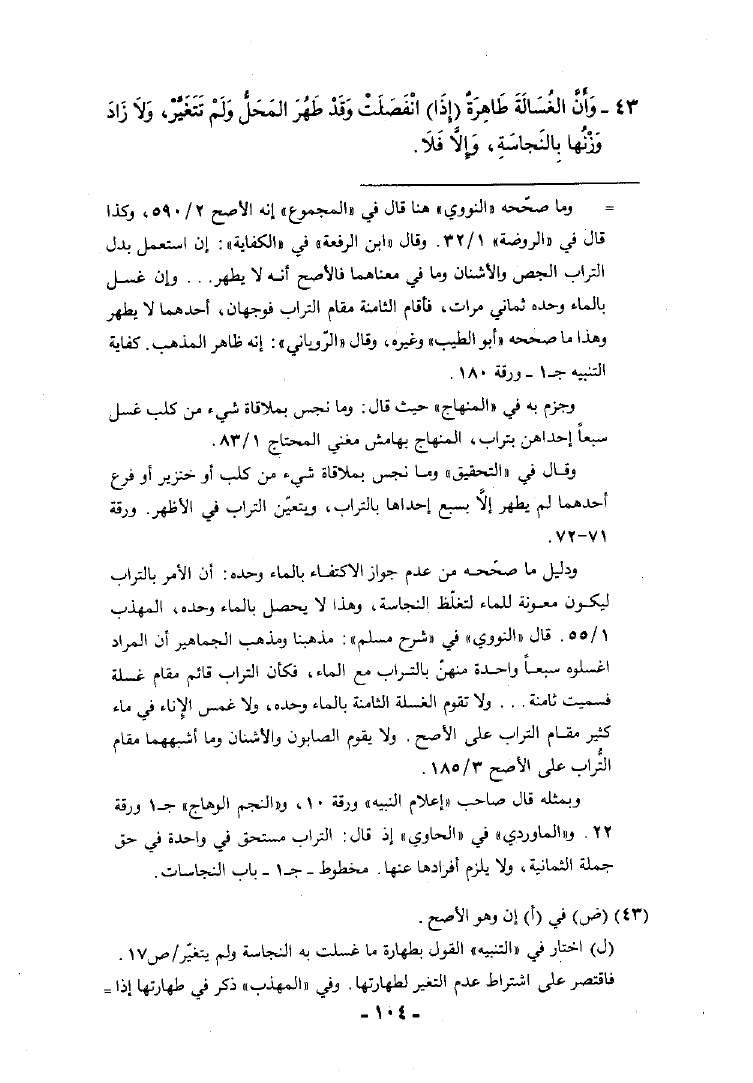 ٤٣ - وَأَنَّ الغُسَالَةَ طَاهِرَةٌ (إِذَا) انْفَصَلَتْ وَقَدْ طَهُرَ المَحَلُّ وَلَمْ تَتَغَيَّرْ، وَلَا زَادَ
وَزْنُها بِالنَجاسَةِ، وَإِلَّا فَلَا.
= وما صحّحه «النووي» هنا قال في «المجموع» إنه الأصح ٥٩٠/٢، وكذا
قال في «الروضة» ٣٢/١. وقال «ابن الرفعة» في «الكفاية»: إن استعمل بدل
التراب الجص والأشنان وما في معناهما فالأصح أنه لا يطهر... وإن غسل
بالماء وحده ثماني مرات، فأقام الثامنة مقام التراب فوجهان، أحدهما لا يطهر
وهذا ما صححه «أبو الطيب» وغيره، وقال «الرّوياني»: إنه ظاهر المذهب. كفاية
التنبيه جـ١ - ورقة ١٨٠.
وجزم به في «المنهاج» حيث قال: وما نجس بملاقاة شيء من كلب غسل
سبعاً إحداهن بتراب، المنهاج بهامش مغني المحتاج ٨٣/١.
وقال في «التحقيق» وما نجس بملاقاة شيء من كلب أو خنزير أو فرع
أحدهما لم يطهر إلَّا بسبع إحداها بالتراب، ويتعيّن التراب في الأظهر. ورقة
٧١-٧٢.
ودليل ما صحّحه من عدم جواز الاكتفاء بالماء وحده: أن الأمر بالتراب
ليكون معونة للماء لتغلّظ النجاسة، وهذا لا يحصل بالماء وحده، المهذب
٥٥/١. قال «النووي» في «شرح مسلم»: مذهبنا ومذهب الجماهير أن المراد
اغسلوه سبعاً واحدة منهنّ بالتراب مع الماء، فكأن التراب قائم مقام غسلة
فسميت ثامنة... ولا تقوم الغسلة الثامنة بالماء وحده، ولا غمس الإناء في ماء
كثير مقام التراب على الأصح. ولا يقوم الصابون والأشنان وما أشبههما مقام
التُّراب على الأصح ١٨٥/٣.
وبمثله قال صاحب «إعلام النبيه» ورقة ١٠، و«النجم الوهاج» جـ١ ورقة
٢٢. و«الماوردي» في «الحاوي» إذ قال: التراب مستحق في واحدة في حق
جملة الثمانية، ولا يلزم أفرادها عنها. مخطوط - جـ١ - باب النجاسات.
(٤٣) (ض) في (أ) إن وهو الأصح.
(ل) اختار في «التنبيه» القول بطهارة ما غسلت به النجاسة ولم يتغيّر/ص١٧.
فاقتصر على اشتراط عدم التغير لطهارتها. وفي «المهذب» ذكر في طهارتها إذا =
- ١٠٤ -